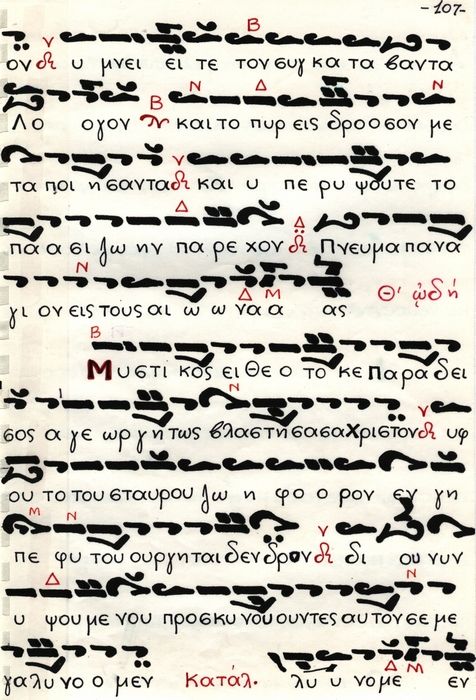 -107-
Β
ον δι υ μνει ει τε τον συγ κα τα βαντα
Β Ν Δ Ν
Λο ογον και το πυρ εις δροσον με
ν
τα ποι η σαντα δι και υ πε ρυ ψουτε το
Δ Δ
πα α σι ζω ην πα ρε χον δι Πνευμα πανα
Ν Δ Μ Θ' ᾠδή
γι ον εις τους αι ω ω να α ας
Β
Μυστι κος ει Θε ο το κε Παρα δει
Ν ν
σος α γε ωρ γη τως βλαστη σασα Χριστον δι υφ
ου το του σταυρου ζω η φο ο ρον εν γη
Μ Ν ν
πε φυ του ουργηται δεν δρον δι δι ου νυν
Δ Ν
υ ψου με νου προσκυ νου ουντες αυ τον σε με
Δ Μ
γαλυ νο ο μεν Κατάλ. λυ υ νο με εν